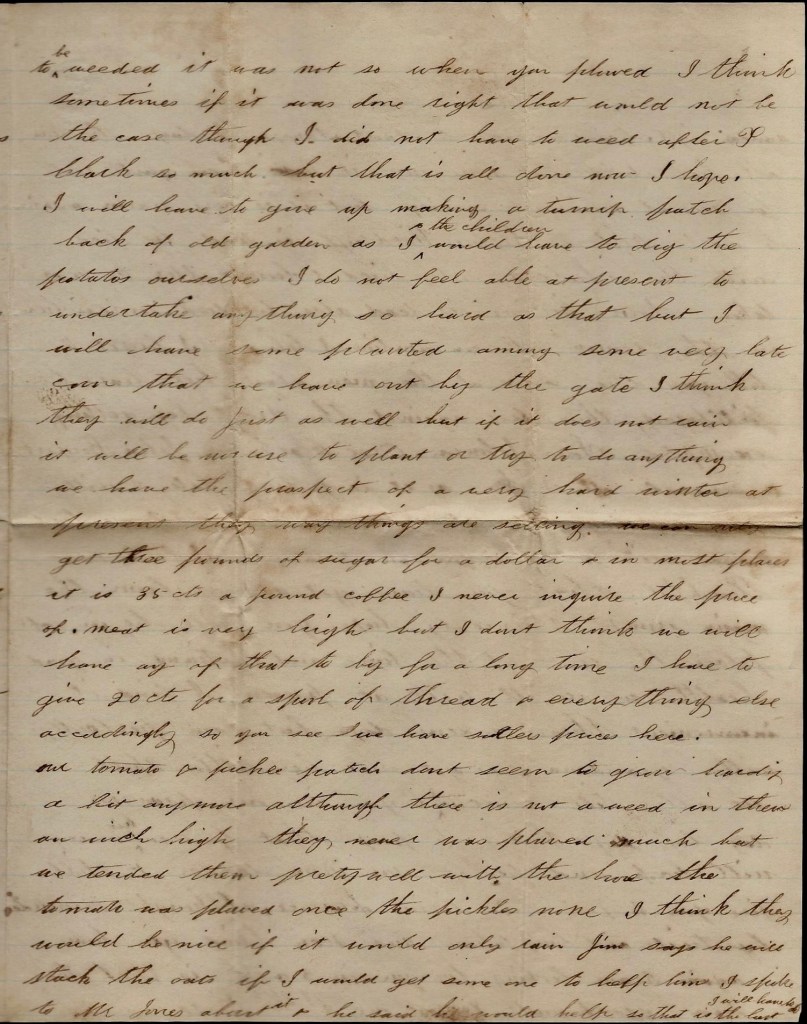 to be weeded it was not so when you plowed I think
sometimes if it was done right that would not be
the case though I did not have to weed after P
Clark so much but that is all done now I hope.
I will have to give up making a turnip patch
back of old garden as I & the children would have to dig the
potatos ourselves I do not feel able at present to
undertake any thing so hard as that but I
will have some planted among some very late
corn that we have out by the gate I think
they will do just as well but if it does not rain
it will be no use to plant or try to do anything
we have the prospect of a very hard winter at
present they way things are seling. we can only
get three pounds of sugar for a dollar & in most places
it is 35 cts a pound coffee I never inquire the price
of. meat is very high but I dont think we will
have any of that to by for a long time I have to
give 20 cts for a spool of thread & everything else
accordingly so you see we have sutlers prices here.
our tomato & pickee patch dont seem to grow hardly
a bit anymore although there is not a weed in them
an inch high they never was plowed much but
we tended them prety well with the hoe the
tomato was plowed once the pickles none I think they
would be nice if it would only rain Jim says he will
stack the oats if I would get some one to help him I spoke
to Mr Jones about it & he said he would help so that is the last I will have